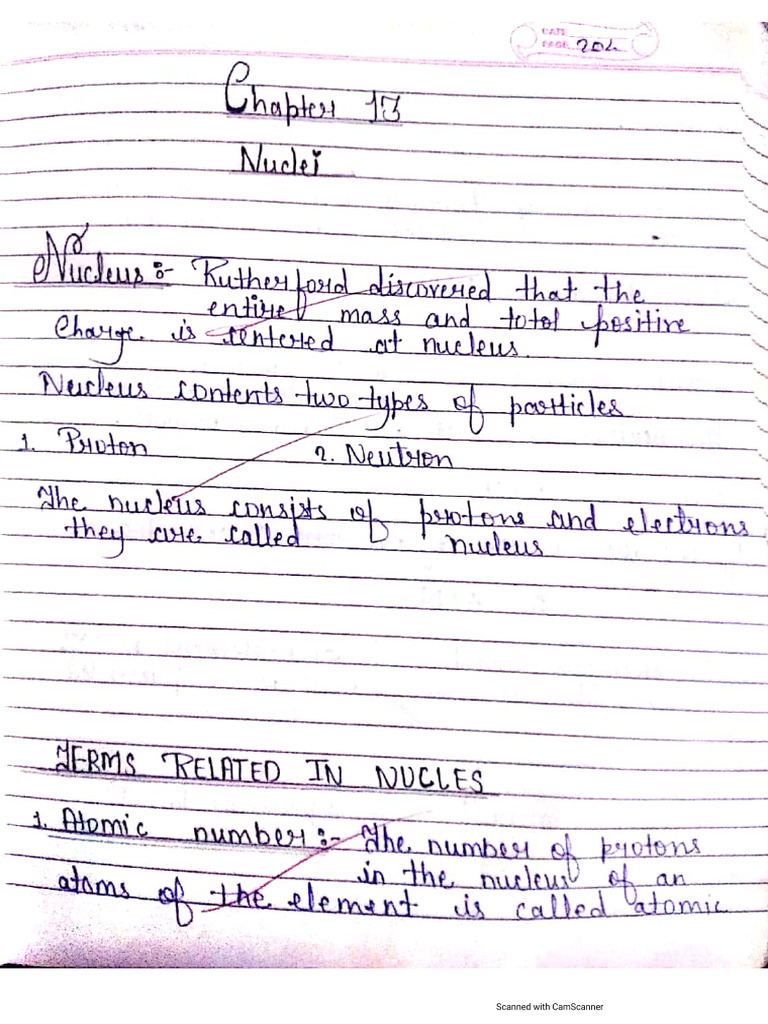 DATE
PAGE 202
Chapter 13
Nuclei
Nucleus :- Rutherford discovered that the
entire mass and total positive
Charge is centered at nucleus.
Nucleus contents two types of particles
1. Proton 2. Neutron
The nucleus consists of protons and electrons
they are called nucleus
TERMS RELATED IN NUCLES
1. Atomic number :- The number of protons
in the nucleus of an
atoms of the element is called atomic
Scanned with CamScanner